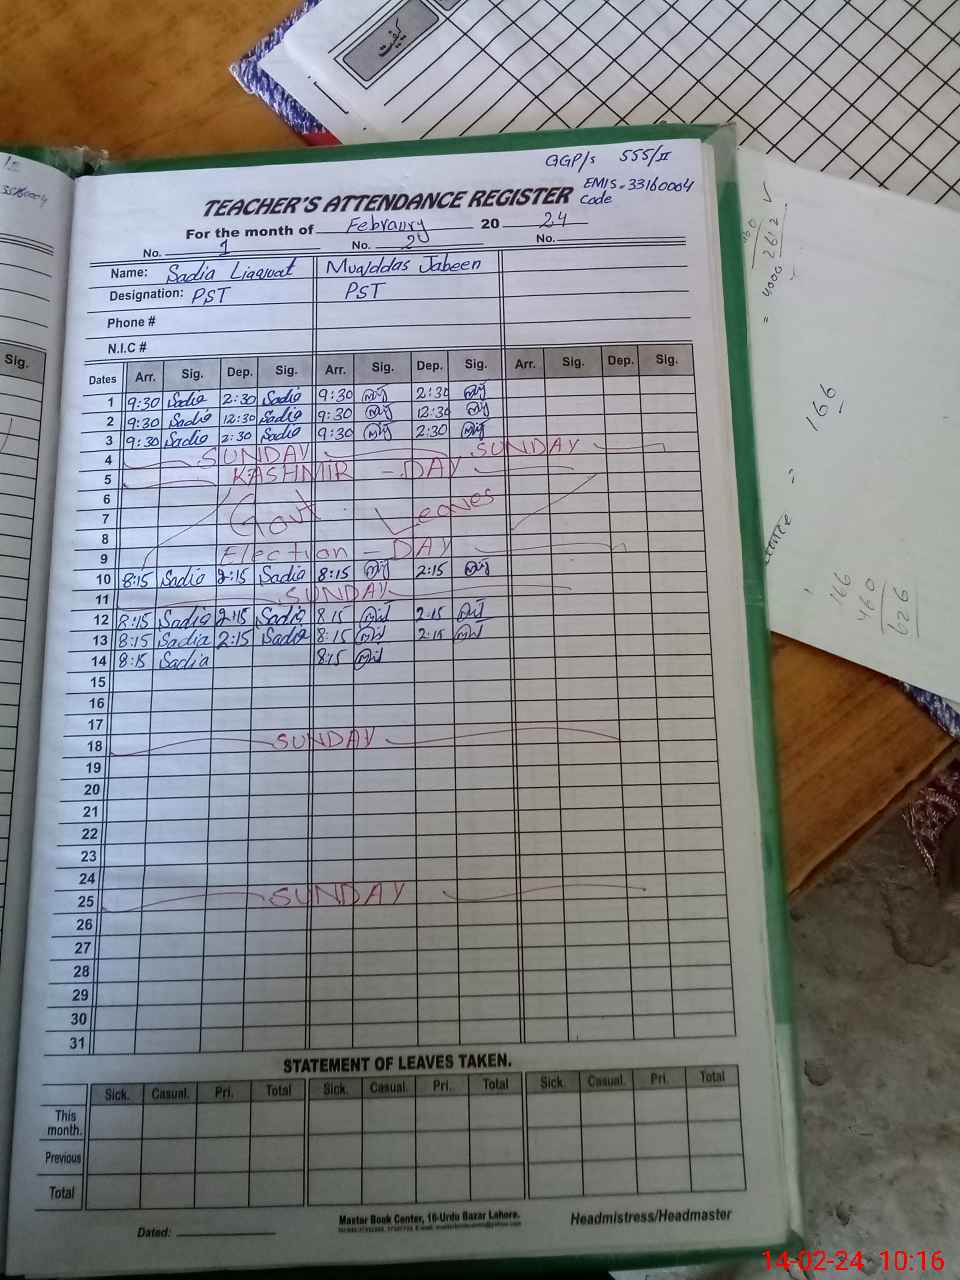 کیفیت
GGP/s 555/II
33160004
TEACHER'S ATTENDANCE REGISTER
EMIS - 33160004
Code
For the month of February 20 24
No. 1 No. 2 No.
Name: Sadia Liaquat Muqddas Jabeen
Designation: PST PST
Phone #
N.I.C #
Sig.
Dates Arr. Sig. Dep. Sig. Arr. Sig. Dep. Sig. Arr. Sig. Dep. Sig.
1 9:30 Sadia 2:30 Sadia 9:30 2:30
2 9:30 Sadia 12:30 Sadia 9:30 12:30
3 9:30 Sadia 2:30 Sadia 9:30 2:30
4 SUNDAY SUNDAY
5 KASHMIR - DAY
6
7 Govt Leaves
8
9 Election - DAY
10 8:15 Sadia 2:15 Sadia 8:15 2:15
11 SUNDAY
12 8:15 Sadia 2:15 Sadia 8:15 2:15
13 8:15 Sadia 2:15 Sadia 8:15 2:15
14 8:15 Sadia 8:15
15
16
17
18 SUNDAY
19
20
21
22
23
24
25 SUNDAY
26
27
28
29
30
31
STATEMENT OF LEAVES TAKEN.
Sick. Casual. Pri. Total Sick. Casual. Pri. Total Sick. Casual. Pri. Total
This
month.
Previous
Total
Dated:
Master Book Center, 16-Urdu Bazar Lahore.
Headmistress/Headmaster
4000 2612
166
166
460
626
14-02-24 10:16